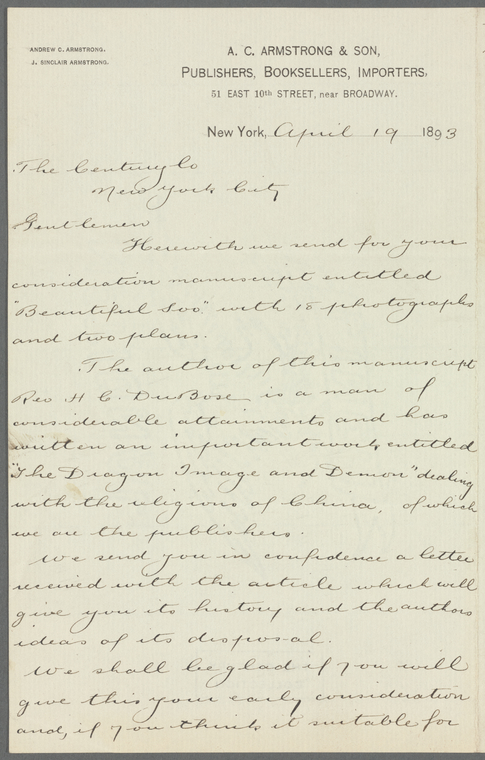 ANDREW C. ARMSTRONG.
J. SINCLAIR ARMSTRONG.
A. C. ARMSTRONG & SON,
PUBLISHERS, BOOKSELLERS, IMPORTERS,
51 EAST 10th STREET, near BROADWAY.
New York, April 19 1893
The Century Co
New York City
Gentlemen
Herewith we send for your
consideration manuscript entitled
"Beautiful Soo", with 18 photographs
and two plans.
The author of this manuscript
Rev H C. DuBose is a man of
considerable attainments and has
written an important work, entitled
"The Dragon Image and Demon" dealing
with the religions of China, of which
we are the publishers.
We send you in confidence a letter
received with the article which will
give you its history and the authors
ideas of its disposal.
We shall be glad if you will
give this your early consideration
and, if you think it suitable for